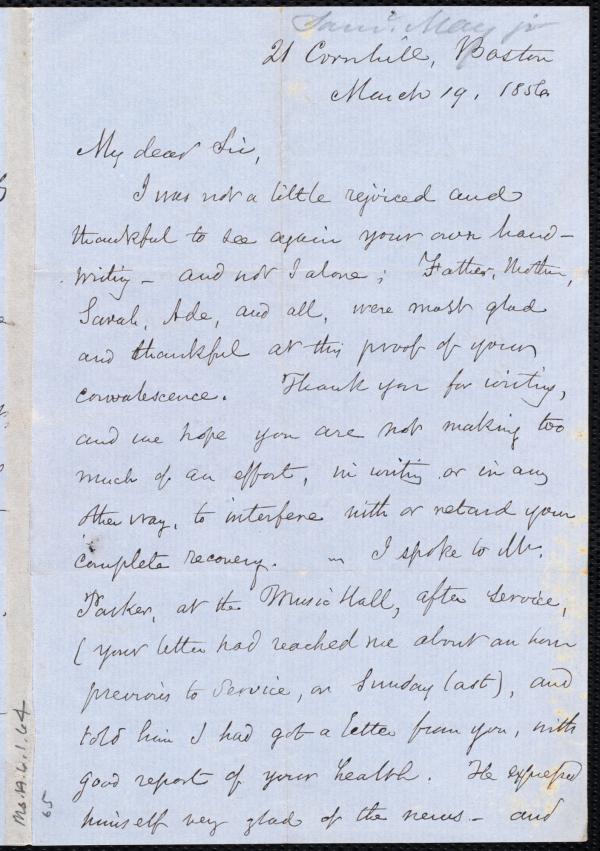 Saml. May jr
21 Cornhill, Boston
March 19. 1856
My dear Sir,
I was not a little rejoiced and
thankful to see again your own hand-
writing - and not I alone; Father, Mother,
Sarah, Ade, and all, were most glad
and thankful at this proof of your
convalescence. Thank you for writing,
and we hope you are not making too
much of an effort, in writing or in any
other way, to interfere with or retard your
complete recovery. - I spoke to Mr.
Parker, at the Music Hall, after service,
(your letter had reached me about an hour
previous to service, on Sunday last), and
told him I had got a letter from you, with
good report of your health. He expressed
himself very glad of the news - and
Ms.A.6.1.64
65